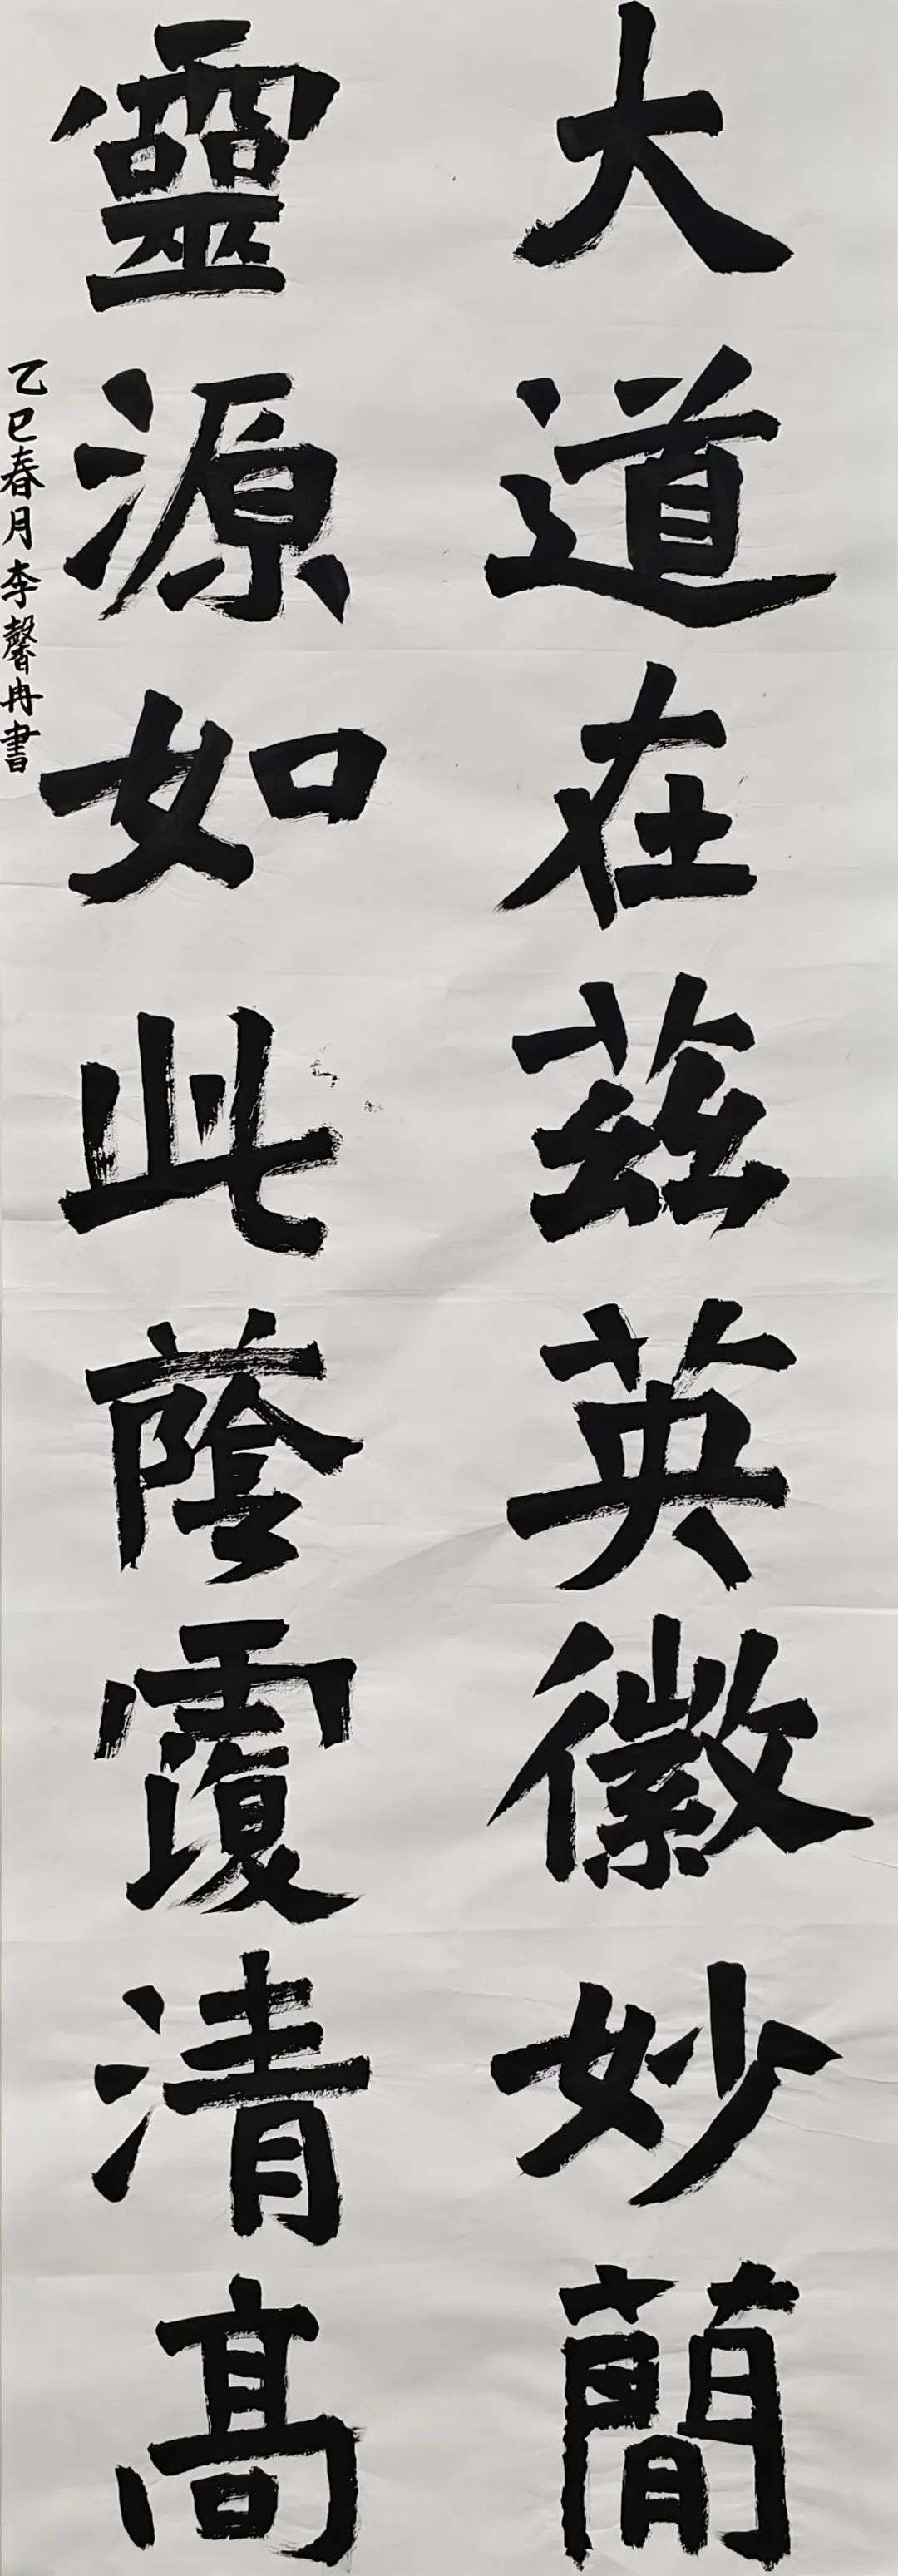 大道在茲英徽妙蕳
靈源如此蔭霞清高
乙巳春月李馨冉書